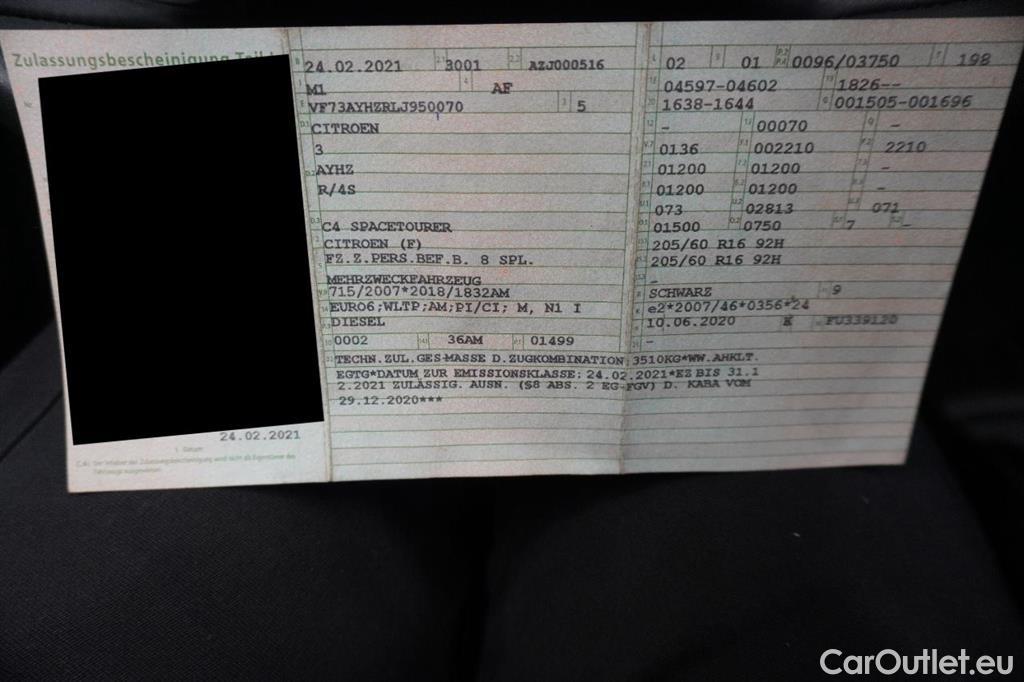 Zulassungsbescheinigung Teil I
24.02.2021
C.4c Der Inhaber der Zulassungsbescheinigung wird nicht als Eigentümer des
Fahrzeugs ausgewiesen.
24.02.2021 3001 AZJ000516
M1 AF
VF73AYHZRLJ950070 5
CITROEN
3
AYHZ
R/4S
C4 SPACETOURER
CITROEN (F)
FZ.Z.PERS.BEF.B. 8 SPL.
MEHRZWECKFAHRZEUG
715/2007*2018/1832AM
EURO6;WLTP;AM;PI/CI; M, N1 I
DIESEL
0002 36AM 01499
02 01 0096/03750 198
04597-04602 1826--
1638-1644 001505-001696
- 00070 -
0136 002210 2210
01200 01200 -
01200 01200 -
073 02813 071
01500 0750 7 -
205/60 R16 92H
205/60 R16 92H
-
SCHWARZ 9
e2*2007/46*0356*24
10.06.2020 K FU339120
-
TECHN.ZUL.GES-MASSE D.ZUGKOMBINATION:3510KG*WW.AHKLT.
EGTG*DATUM ZUR EMISSIONSKLASSE: 24.02.2021*EZ BIS 31.1
2.2021 ZULÄSSIG. AUSN. (§8 ABS. 2 EG-FGV) D. KABA VOM
29.12.2020***
CarOutlet.eu